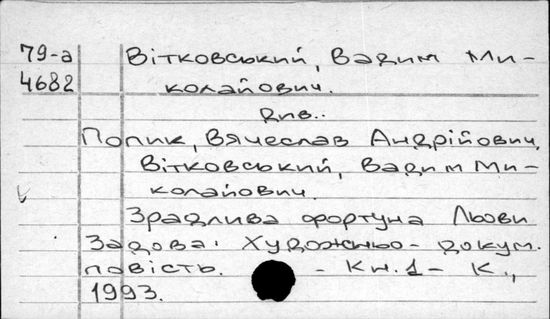 79-а Вітковський, Вадим Ми-
4682 колайович.
див.:
Попик, Вячеслав Андрійович,
Вітковський, Вадим Ми-
колайович.
Зрадлива фортуна Льови
Задова: Художньо-докум.
повість. - Кн.1 - К.,
1993.